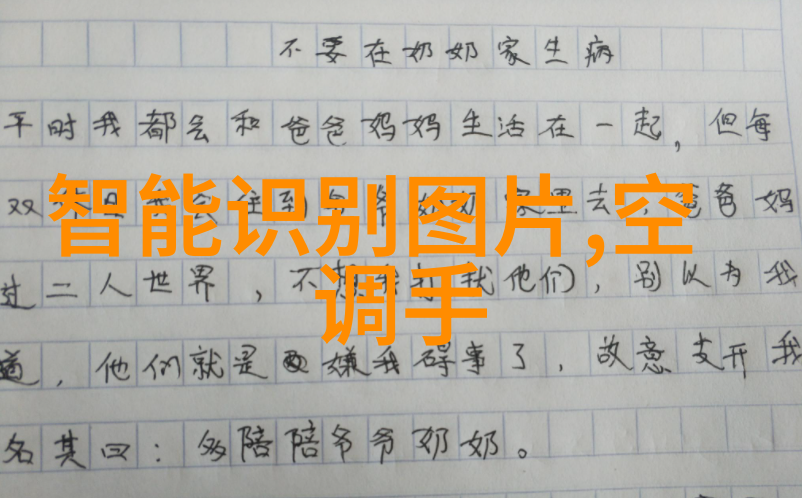 不要在奶奶家生病
平时我都会和爸爸妈妈生活在一起,但每
双 到 家里去,爸爸妈
智能识别图片,空
过二人世界,不想我 他们,别以为我
调手
道,他们就是嫌我碍事了,故意支开我
名其曰:多陪陪爷爷奶奶。